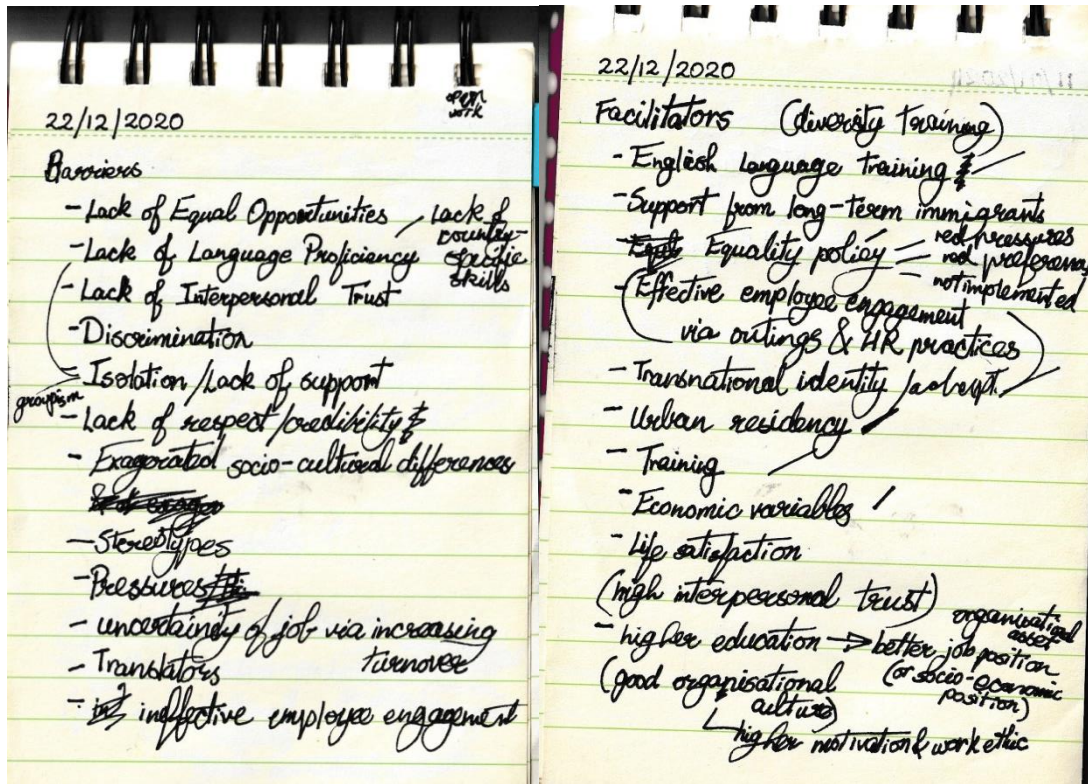 open
work
22/12/2020
Barriers
- Lack of Equal Opportunities
- Lack of Language Proficiency / Lack of
country-
specific
skills
- Lack of Interpersonal Trust
- Discrimination
- Isolation / Lack of support
groupism
- Lack of respect / credibility
- Exagerated socio-cultural differences
- Stereotypes
- Pressures
- uncertainity of job via increasing
turnover
- Translators
- ineffective employee engagement
22/12/2020
Facilitators (diversity training)
- English Language Training
- Support from long-term immigrants
Equality policy - red pressures
- red preferences
- not implemented
- Effective employee engagement
via outings & HR practices
- Transnational identity
- Urban residency
- Training
- Economic variables
- Life satisfaction
(high interpersonal trust)
- higher education → better job position
organisational
asset
(or socio-economic
position)
(good organisational
culture)
higher motivation & work ethic